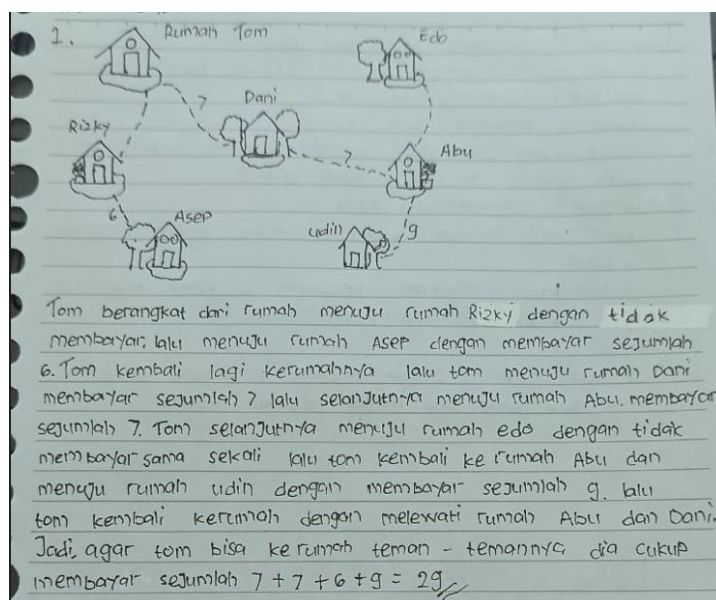 1. Rumah Tom
Edo
7
Dani
Rizky
7
Abu
6
Asep
udin
9
Tom berangkat dari rumah menuju rumah Rizky dengan tidak
membayar, lalu menuju rumah Asep dengan membayar sejumlah
6. Tom kembali lagi kerumahnya lalu tom menuju rumah Dani
membayar sejumlah 7 lalu selanjutnya menuju rumah Abu. membayar
sejumlah 7. Tom selanjutnya menuju rumah edo dengan tidak
membayar sama sekali lalu tom kembali ke rumah Abu dan
menuju rumah udin dengan membayar sejumlah 9. lalu
tom kembali kerumah dengan melewati rumah Abu dan Dani.
Jadi, agar tom bisa ke rumah teman - temannya dia cukup
membayar sejumlah 7 + 7 + 6 + 9 = 29